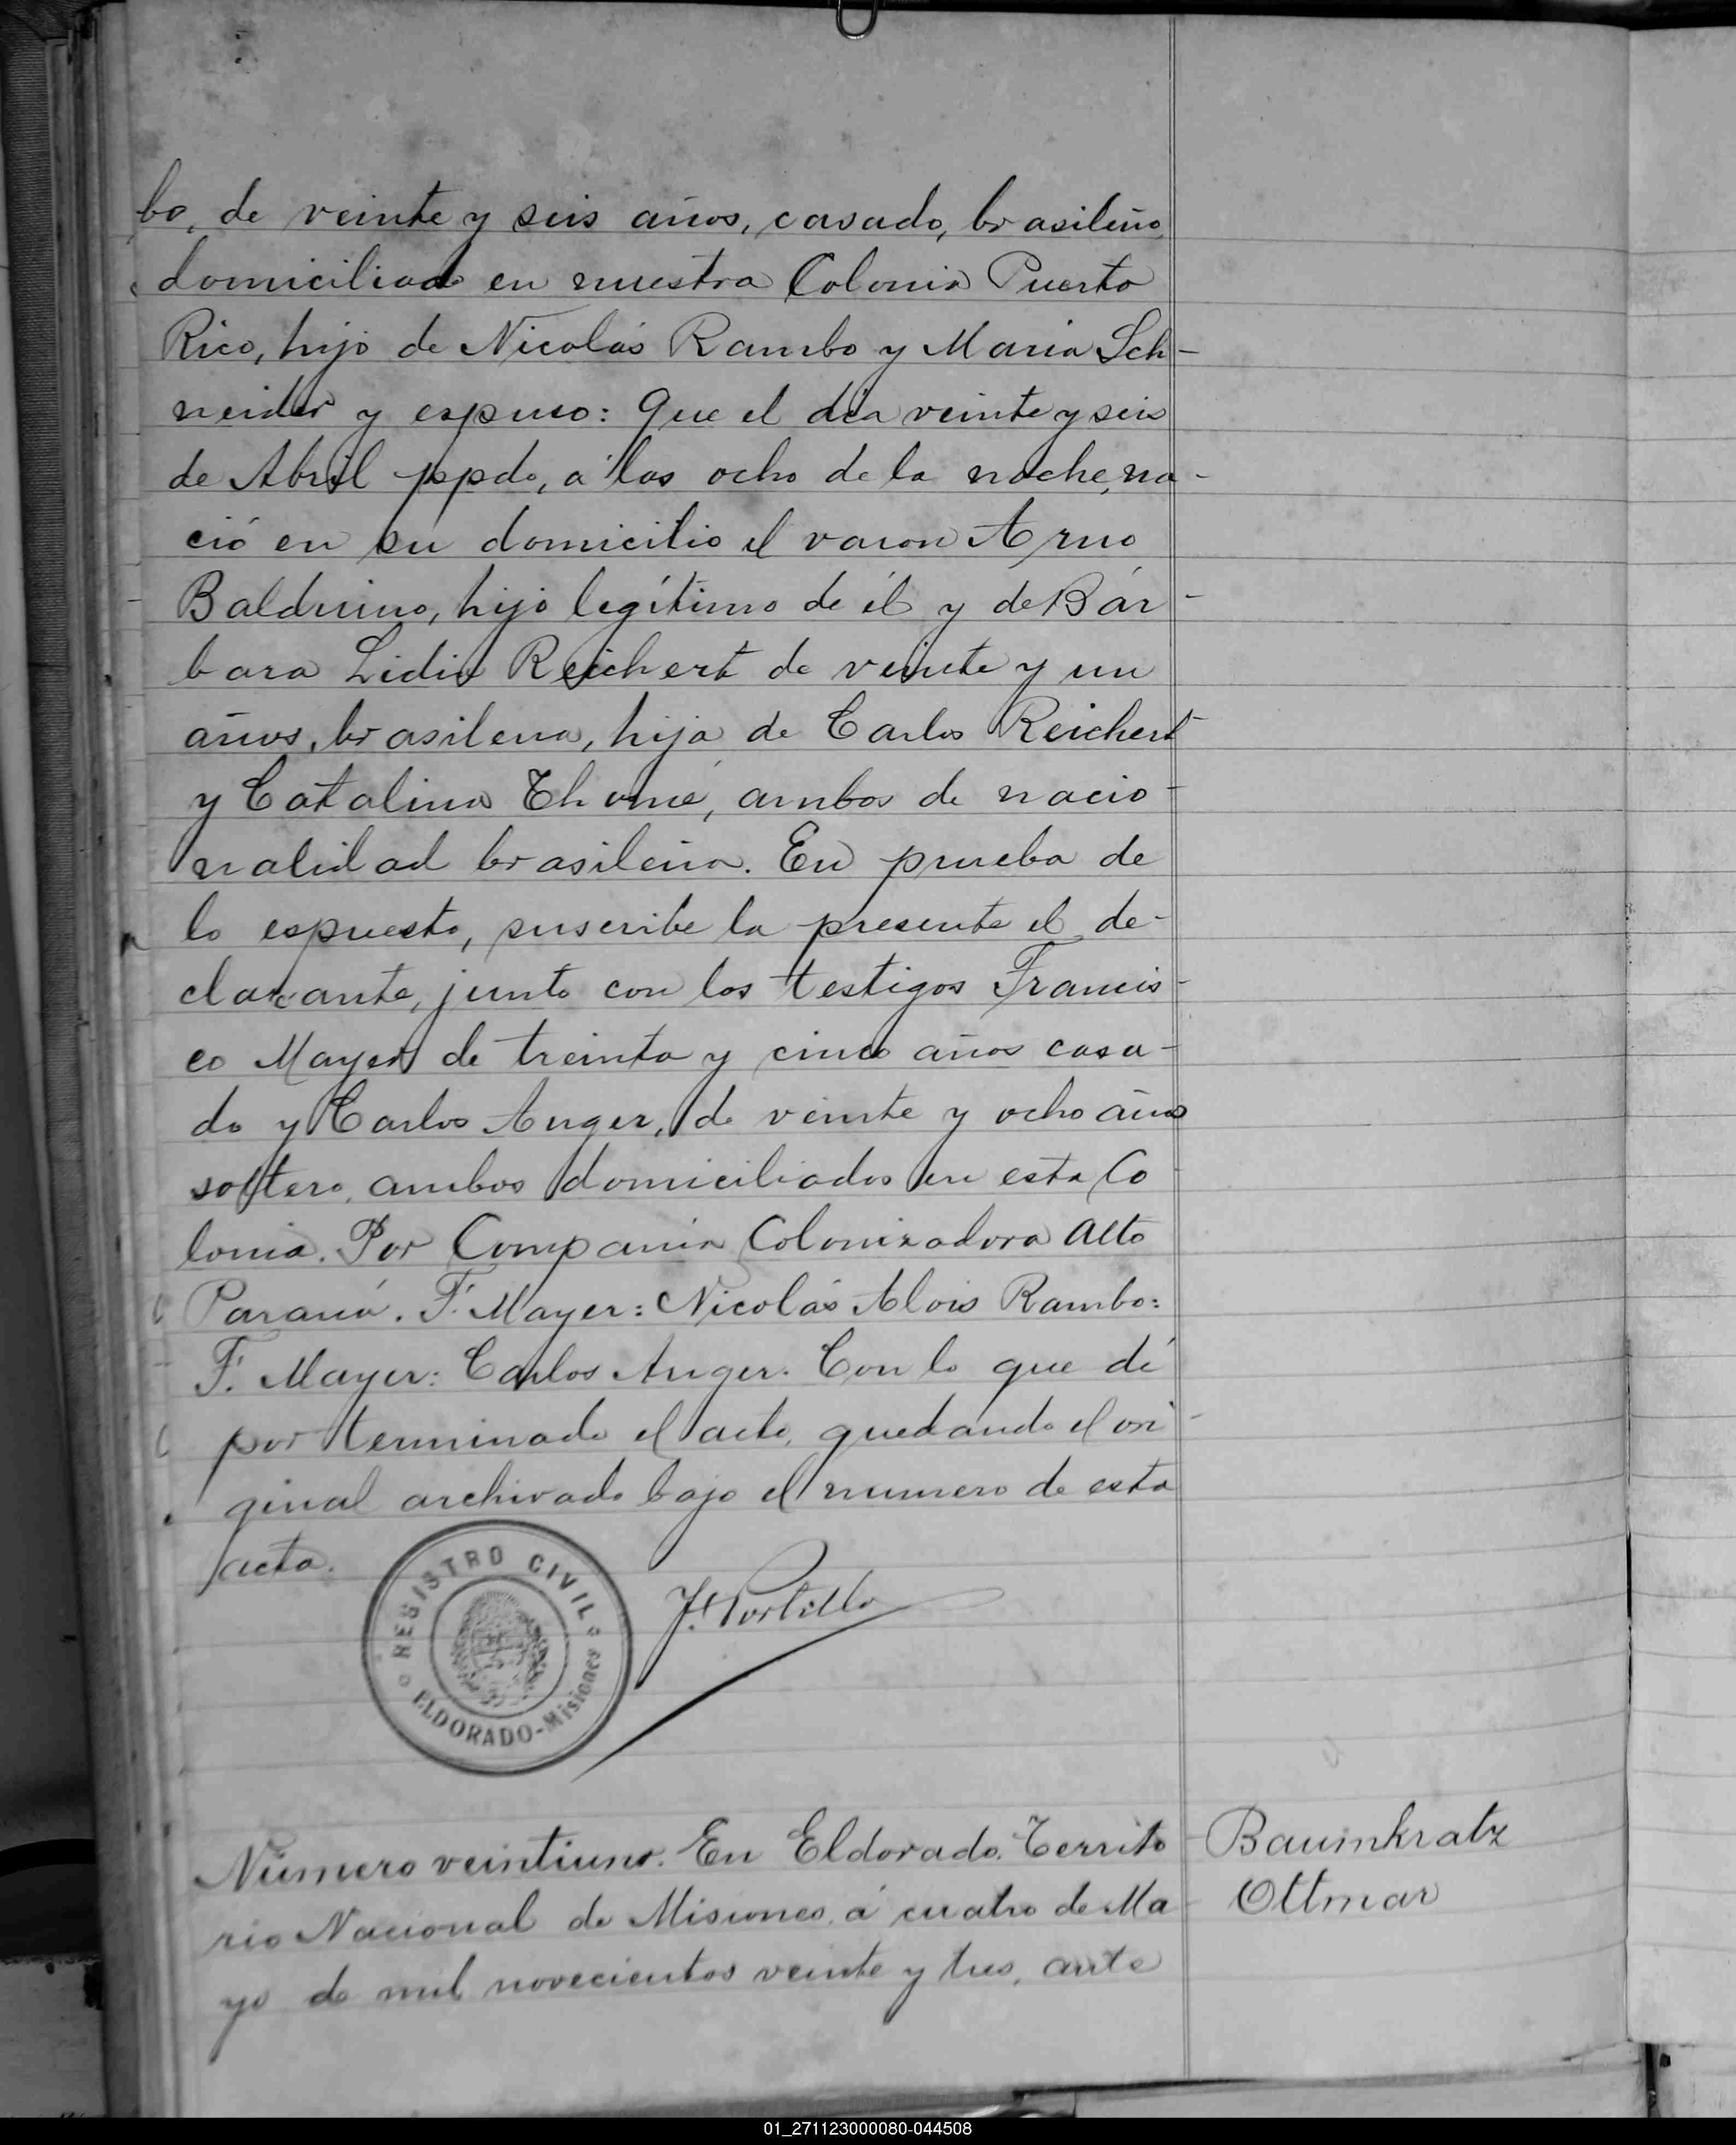 bo, de veinte y seis años, casado, brasileño,
domiciliado en nuestra Colonia Puerto
Rico, hijo de Nicolás Rambo y Maria Sch-
neider y espuso: Que el dia veinte y seis
de Abril ppdo, a las ocho de la noche, na-
ció en su domicilio el varon Arno
Balduino, hijo legítimo de él y de Bár-
bara Lidia Reichert de veinte y un
años, brasilena, hija de Carlos Reichert
y Catalina Thomé, ambos de nacio-
nalidad brasileña. En prueba de
lo espuesto, suscribe la presente el de-
clarante, junto con los testigos Francis-
co Mayer de treinta y cinco años casa-
do y Carlos Anger, de veinte y ocho años
soltero, ambos domiciliados en esta Co
lonia. Por Compania Colonizadora Alto
Paraná. F. Mayer: Nicolás Alois Rambo:
F. Mayer: Carlos Anger. Con lo que dí
por terminado el acto, quedando el ori-
ginal archivado bajo el numero de esta
acta.
REGISTRO CIVIL
ELDORADO-Misiones
J. Portillo
Número veintiuno. En Eldorado. Territo
rio Nacional de Misiones, á cuatro de Ma
yo de mil novecientos veinte y tres, ante
Baumkratz
Ottmar
01_271123000080-044508